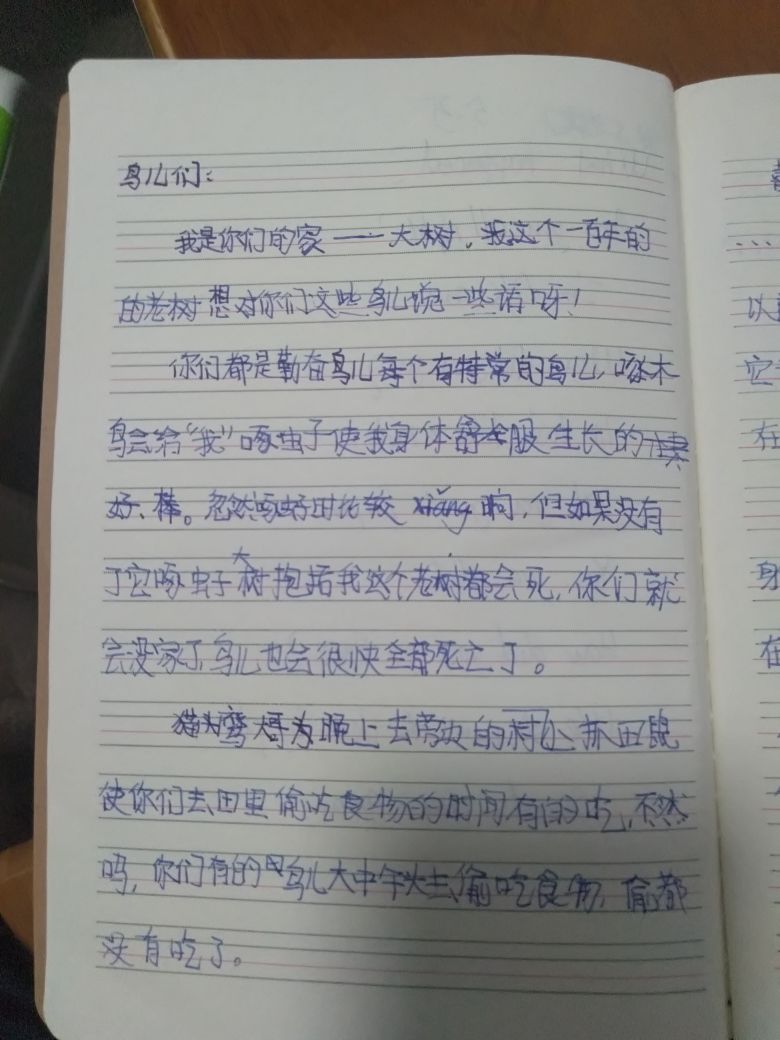 鸟儿们：
我是你们的家——大树，我这个一百年的
的老树想对你们这些鸟儿说一些话呀！
你们都是勤奋鸟儿每个有特常的鸟儿，啄木
鸟会给“我”啄虫子使我身体舒服生长的
好、棒。忽然啄时比较xiǎng啊，但如果没有
了它啄虫子大树抱括我这个老树都会死，你们就
会没家了鸟儿也会很快全都死亡了。
猫头鹰大哥为晚上去旁边的村，抓田鼠
使你们去田里偷吃食物的时间有的吃，不然
吗，你们有的鸟儿大中午去偷吃食物，偷都
没有吃了。
…
以
它
在
身
在